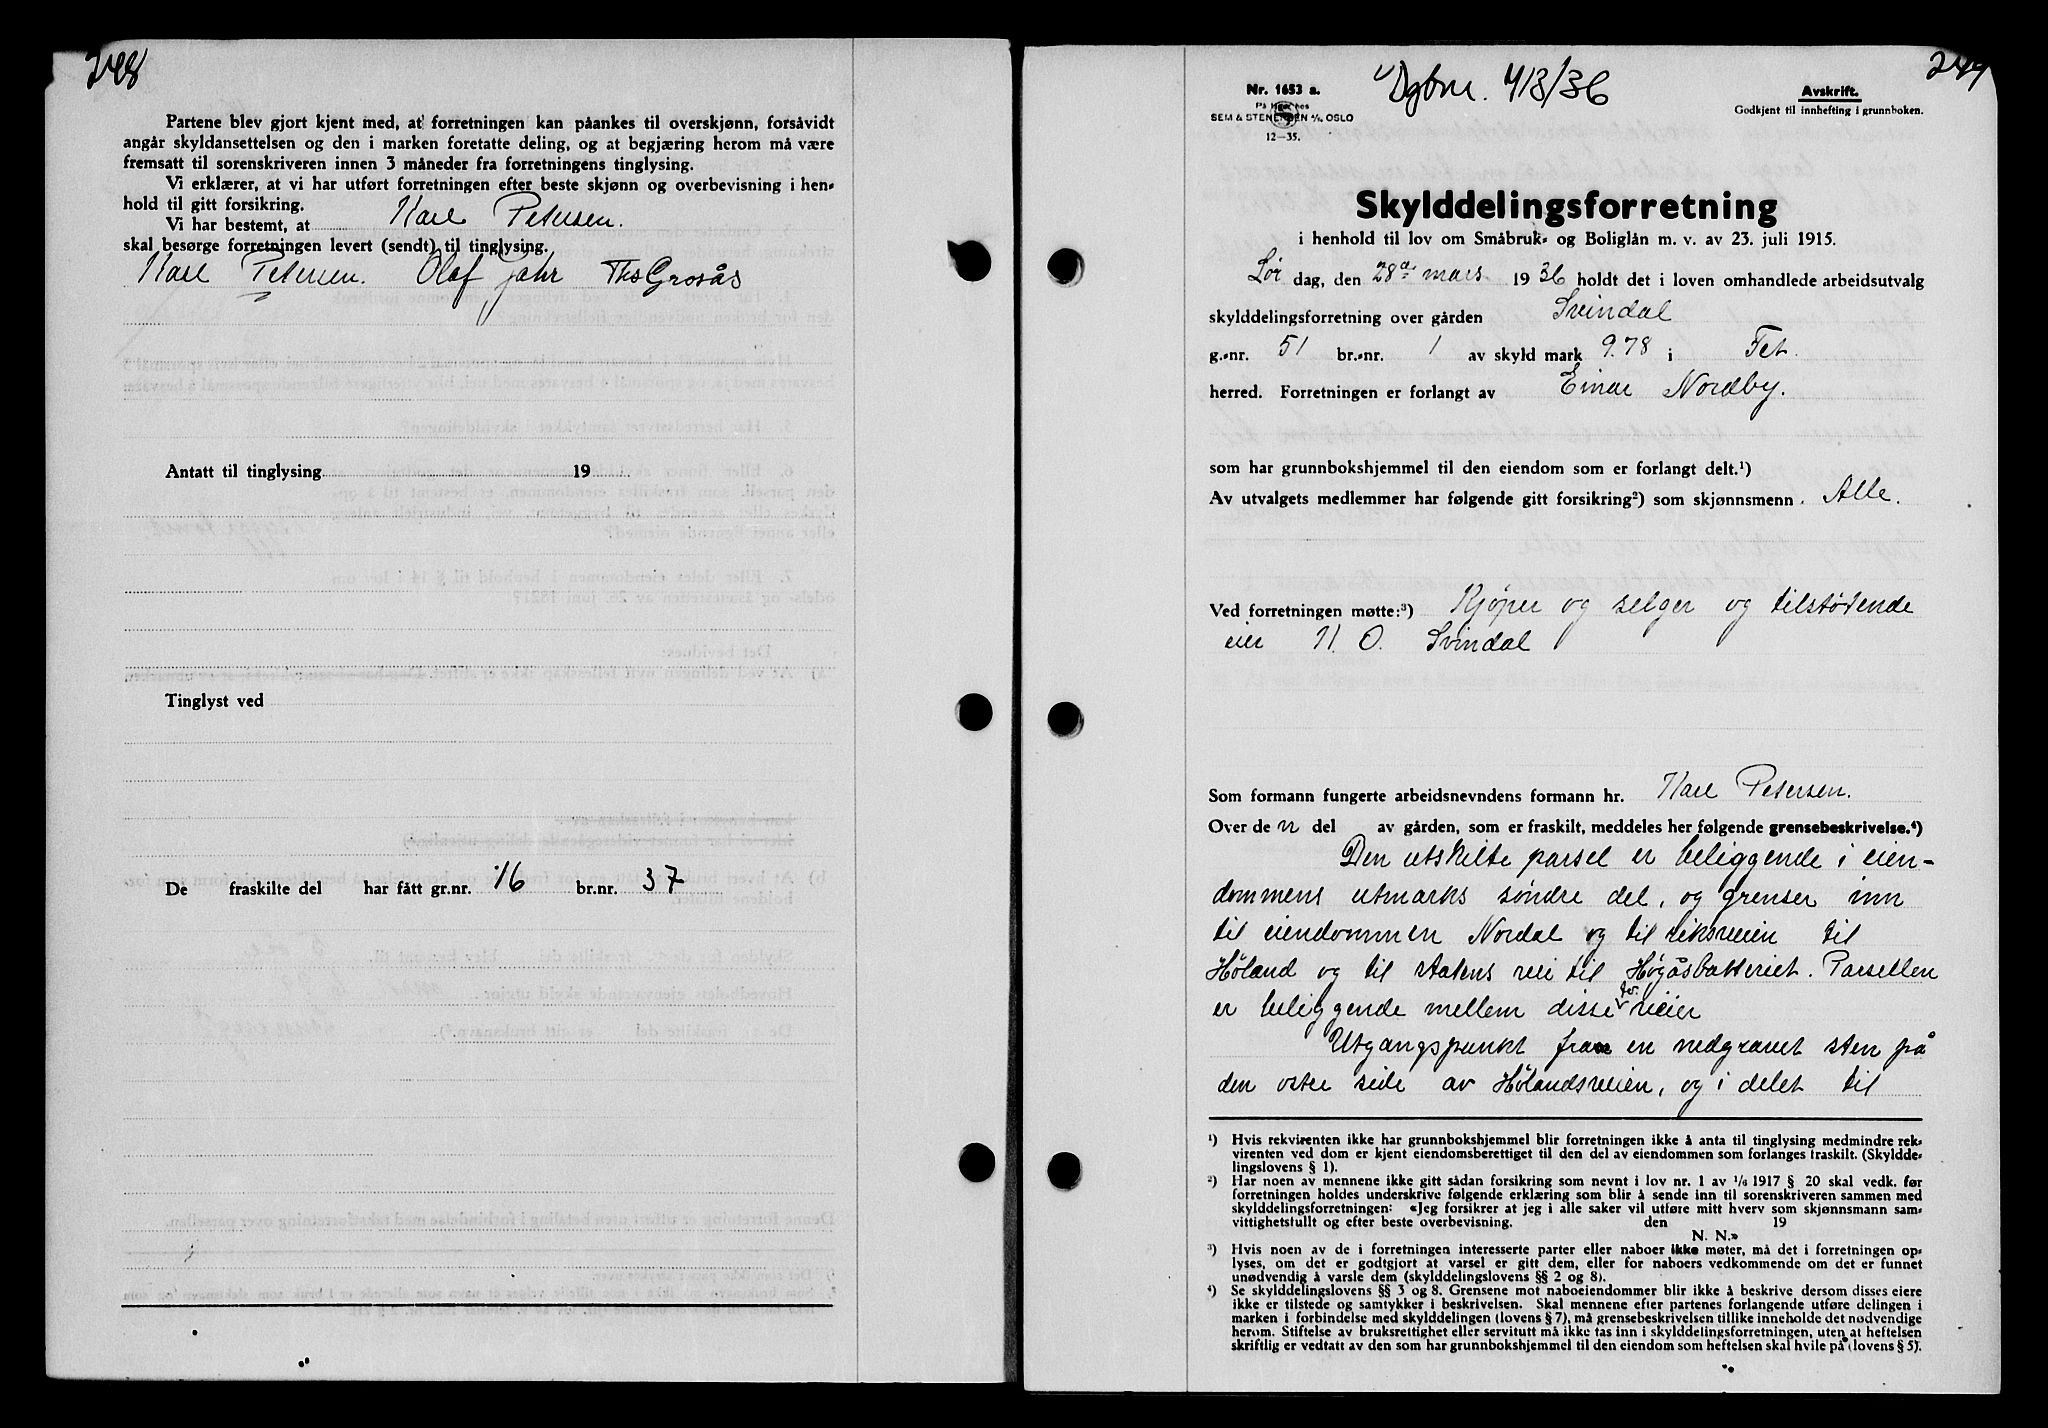 248
Partene blev gjort kjent med, at forretningen kan påankes til overskjønn, forsåvidt
angår skyldansettelsen og den i marken foretatte deling, og at begjæring herom må være
fremsatt til sorenskriveren innen 3 måneder fra forretningens tinglysing.
Vi erklærer, at vi har utført forretningen efter beste skjønn og overbevisning i hen-
hold til gitt forsikring.
Vi har bestemt, at Karl Petersen.
skal besørge forretningen levert (sendt) til tinglysing.
Karl Petersen. Olaf Jahr Ths Grosås
Antatt til tinglysing 19
Tinglyst ved
De fraskilte del har fått gr.nr. 16 br.nr. 37
249
Nr. 1653 a.
På lager hos
SEM & STENERSEN A/S, OSLO
12—35.
Dgbnr. 413/36
Avskrift.
Godkjent til innhefting i grunnboken.
Skylddelingsforretning
i henhold til lov om Småbruk- og Boliglån m. v. av 23. juli 1915.
Lør dag, den 28de mars 1936 holdt det i loven omhandlede arbeidsutvalg
skylddelingsforretning over gården Svindal
g.-nr. 51 br.-nr. 1 av skyld mark 9.78 i Fet.
herred. Forretningen er forlangt av Einar Nordby.
som har grunnbokshjemmel til den eiendom som er forlangt delt.¹)
Av utvalgets medlemmer har følgende gitt forsikring²) som skjønnsmenn. Alle.
Ved forretningen møtte:³) Kjøper og selger og tilstøtende
eier H. O. Svindal
Som formann fungerte arbeidsnevndens formann hr. Karl Petersen.
Over de n del av gården, som er fraskilt, meddeles her følgende grensebeskrivelse.⁴)
Den utskilte parsel er beliggende i eien-
dommens utmarks søndre del, og grenser inn
til eiendommen Nordal og til riksveien til
Høland og til statens vei til Høgåsbatteriet. Parsellen
er beliggende mellem disse to veier
Utgangspunkt fra en nedgravet sten på
den østre side av Hølandsveien, og i delet til
¹) Hvis rekvirenten ikke har grunnbokshjemmel blir forretningen ikke å anta til tinglysing medmindre rek-
virenten ved dom er kjent eiendomsberettiget til den del av eiendommen som forlanges fraskilt. (Skyldde-
lingslovens § 1).
²) Har noen av mennene ikke gitt sådan forsikring som nevnt i lov nr. 1 av 1/6 1917 § 20 skal vedk. før
forretningen holdes underskrive følgende erklæring som blir å sende inn til sorenskriveren sammen med
skylddelingsforretningen: «Jeg forsikrer at jeg i alle saker vil utføre mitt hverv som skjønnsmann sam-
vittighetsfullt og efter beste overbevisning. den 19
N. N.»
³) Hvis noen av de i forretningen interesserte parter eller naboer ikke møter, må det i forretningen op-
lyses, om det er godtgjort at varsel er gitt dem, eller for naboers vedkommende om det er funnet
unødvendig å varsle dem (skylddelingslovens §§ 2 og 8).
⁴) Se skylddelingslovens §§ 3 og 8. Grensene mot naboeiendommer blir ikke å beskrive dersom disses eiere
ikke er tilstede og samtykker i beskrivelsen. Skal mennene efter partenes forlangende utføre delingen i
marken i forbindelse med skylddelingen (lovens § 7), må grensebeskrivelsen tillike inneholde det nødvendige
herom. Stiftelse av bruksrettighet eller servitutt må ikke tas inn i skylddelingsforretningen, uten at heftelsen
skriftlig er vedtatt av den som har grunnbokshjemmel til den eiendom som heftelsen skal hvile på (lovens § 5).